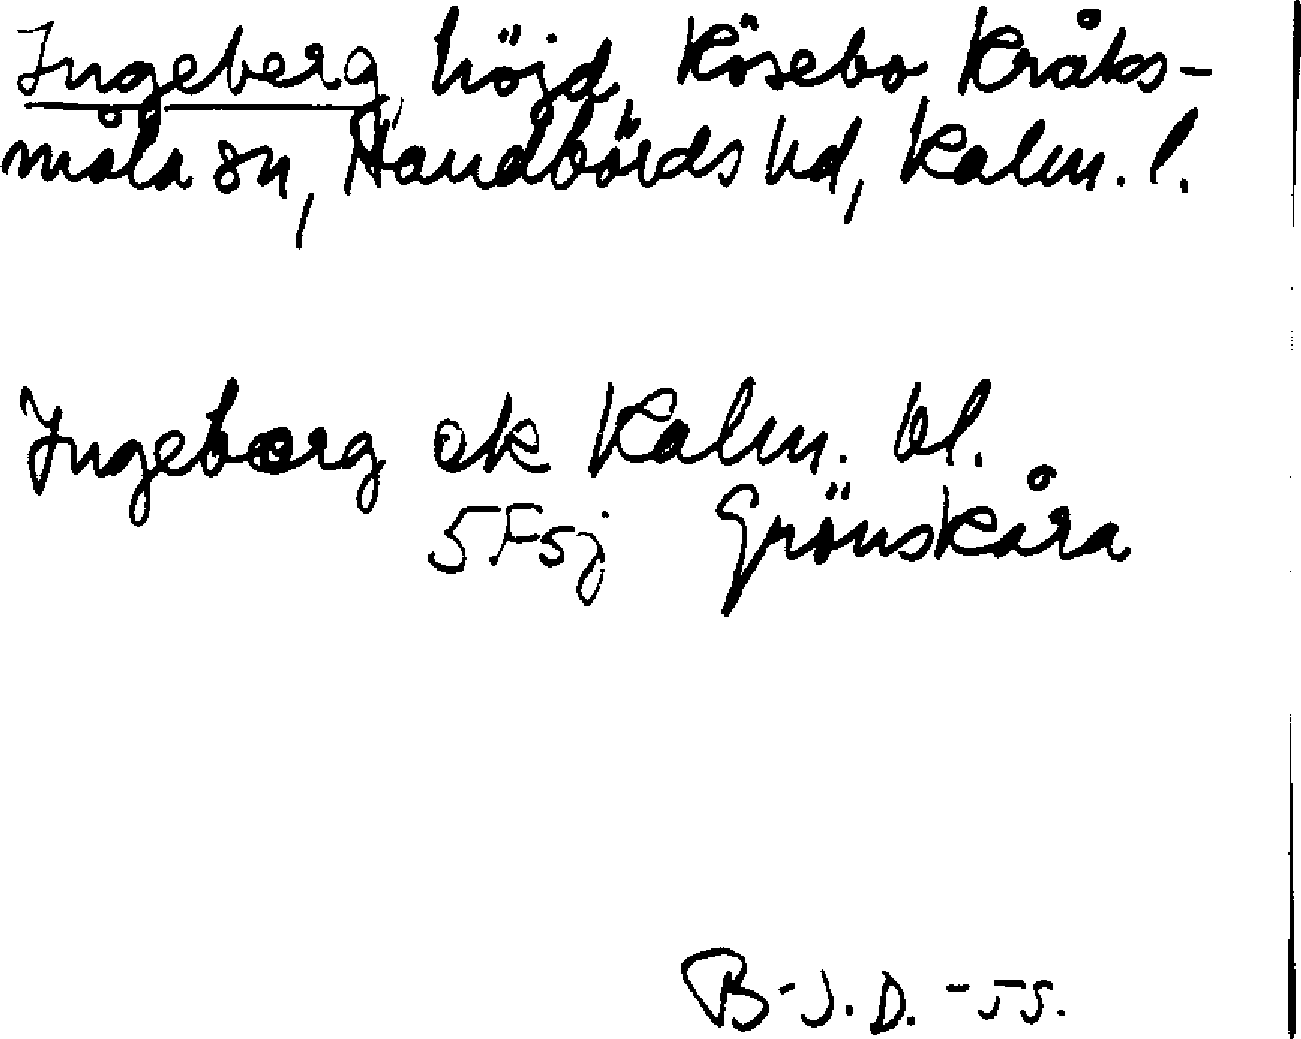 Ingeberg, höjd, Kösebo, Kråks-
måla sn, Handbörds hd, Kalm. l.
Ingeborg ek Kalm. bl.
5Fsj Grönskåra
B-J.D. -55.